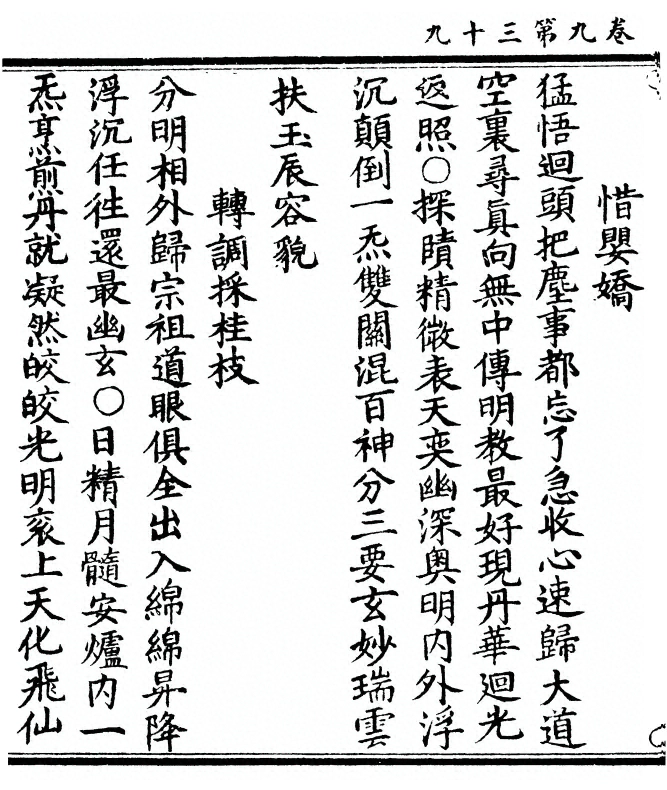 卷九第三十九
惜嬰嬌
猛悟迴頭把塵事都忘了急收心速歸大道
空裏尋真向無中傳明教最好現丹華迴光
返照○探賾精微表天奕幽深奧明內外浮
沉顛倒一炁雙關混百神分三要玄妙瑞雲
扶玉辰容貌
轉調採桂枝
分明相外歸宗祖道眼俱全出入綿綿昇降
浮沉任往還最幽玄○日精月髓安爐內一
炁烹煎丹就凝然皎皎光明衮上天化飛仙